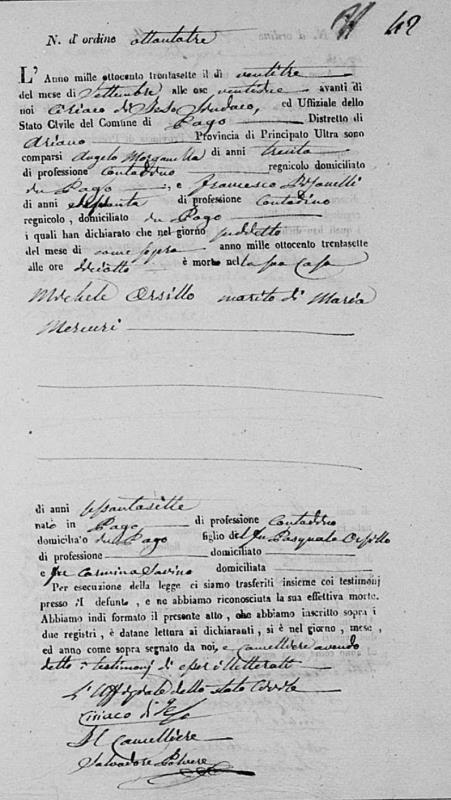 42
N. d'ordine ottantatre
L'Anno mille ottocento trentasette il dì ventitre
del mese di Settembre alle ore ventidue avanti di
noi Ciriaco di Peso Sindaco, ed Uffiziale dello
Stato Civile del Comune di Pago Distretto di
Ariano Provincia di Principato Ultra sono
comparsi Angelo Morganella di anni trenta
di professione Contadino regnicolo domiciliato
in Pago, e Francesco
di anni di professione Contadino
regnicolo, domiciliato in Pago
i quali han dichiarato che nel giorno suddetto
del mese di come sopra anno mille ottocento trentasette
alle ore dieciotto è morto nel la sua Casa
Michele Orsillo marito di Maria
Mercuri
di anni sessantasette
nato in Pago di professione Contadino
domicilia'o in Pago figlio del fu Pasquale Orsillo
di professione domiciliato
e fu Carmina Savino domiciliata
Per esecuzione della legge ci siamo trasferiti insieme coi testimonj
presso il defunto, e ne abbiamo riconosciuta la sua effettiva morte.
Abbiamo indi formato il presente atto, che abbiamo inscritto sopra i
due registri, è datane lettura ai dichiaranti, si è nel giorno, mese,
ed anno come sopra segnato da noi, e Cancelliere avendo
detto i testimonj di essere illetterati
L'Uffiziale dello stato Civile
Ciriaco di Peso
Il Cancelliere
Salvadore Polvere